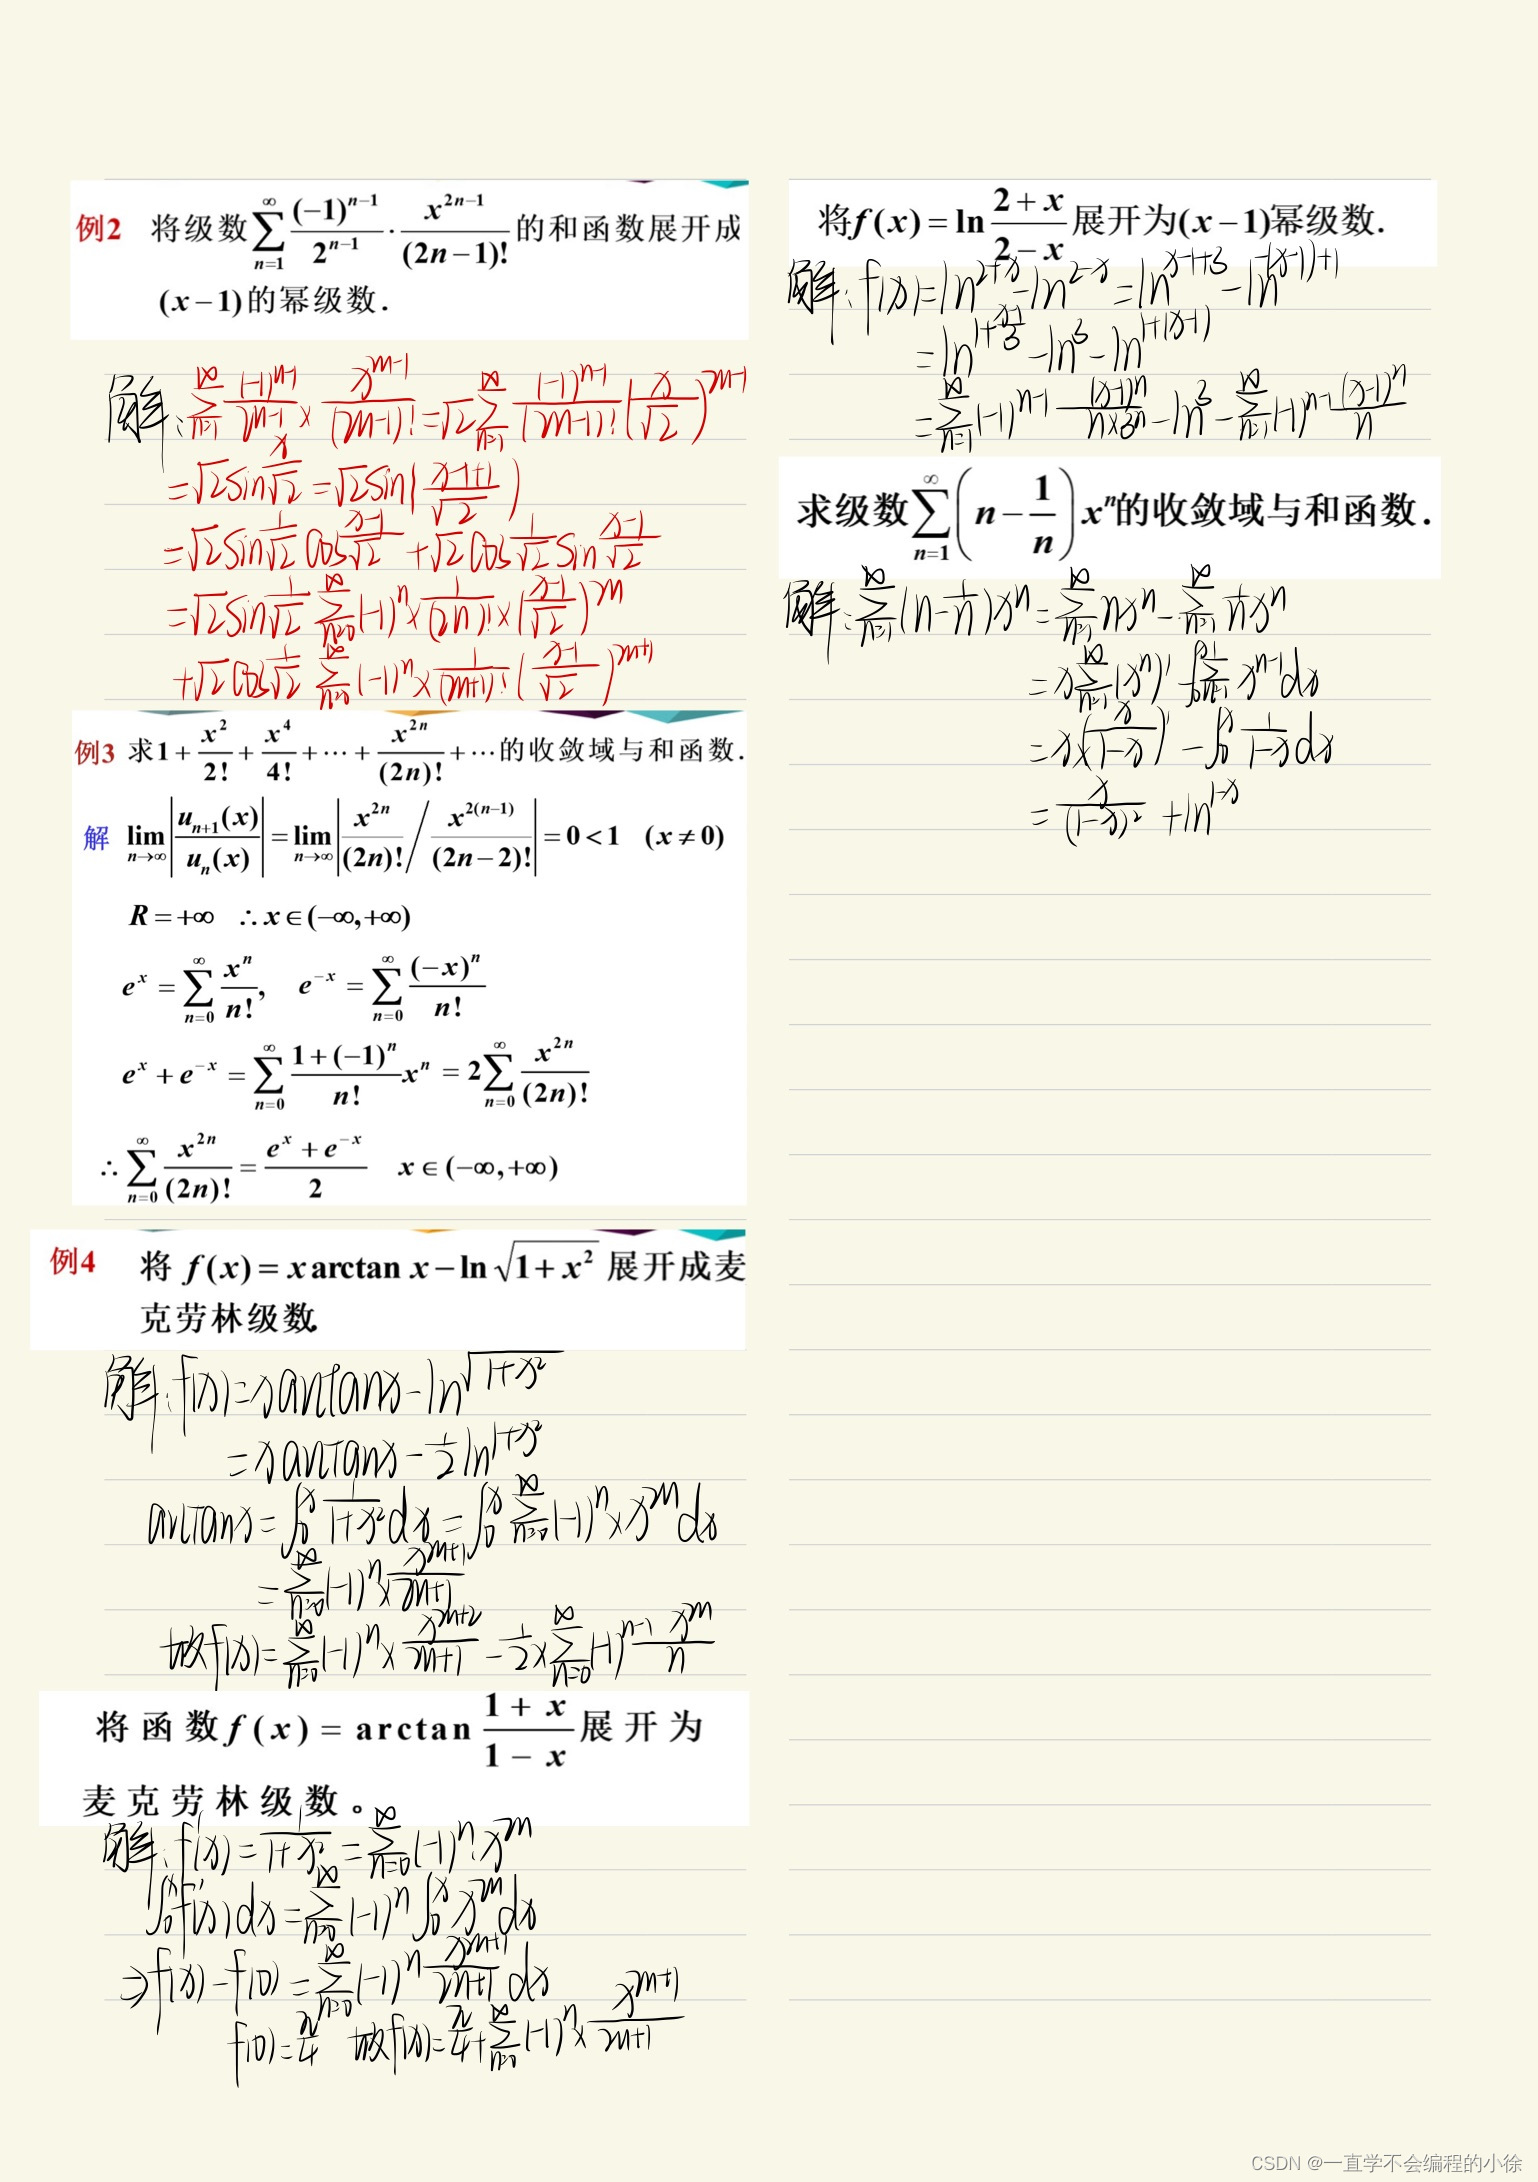 例2 将级数 ∑_{n=1}^{∞} (−1)^{n−1}/2^{n−1} · x^{2n−1}/(2n−1)! 的和函数展开成
(x−1)的幂级数.
解: ∑_{n=1}^{∞} (−1)^{n−1}/2^{n−1} × x^{2n−1}/(2n−1)! = √2 ∑_{n=1}^{∞} (−1)^{n−1}/(2n−1)! (x/√2)^{2n−1}
= √2 sin x/√2 = √2 sin( (x−1+1)/√2 )
= √2 sin 1/√2 cos (x−1)/√2 + √2 cos 1/√2 sin (x−1)/√2
= √2 sin 1/√2 ∑_{n=0}^{∞} (−1)^n × 1/(2n)! × ((x−1)/√2)^{2n}
+ √2 cos 1/√2 ∑_{n=0}^{∞} (−1)^n × 1/(2n+1)! ((x−1)/√2)^{2n+1}
例3 求 1 + x^2/2! + x^4/4! + ⋯ + x^{2n}/(2n)! + ⋯ 的收敛域与和函数.
解 lim_{n→∞} |u_{n+1}(x)/u_n(x)| = lim_{n→∞} |x^{2n}/(2n)! / x^{2(n−1)}/(2n−2)!| = 0 < 1 (x ≠ 0)
R = +∞ ∴ x ∈ (−∞,+∞)
e^x = ∑_{n=0}^{∞} x^n/n!, e^{−x} = ∑_{n=0}^{∞} (−x)^n/n!
e^x + e^{−x} = ∑_{n=0}^{∞} (1+(−1)^n)/n! x^n = 2∑_{n=0}^{∞} x^{2n}/(2n)!
∴ ∑_{n=0}^{∞} x^{2n}/(2n)! = (e^x + e^{−x})/2 x ∈ (−∞,+∞)
例4 将 f(x) = x arctan x − ln √(1+x^2) 展开成麦
克劳林级数.
解: f(x) = x arctan x − ln √(1+x^2)
= x arctan x − 1/2 ln 1+x^2
arctan x = ∫_0^x 1/(1+x^2) dx = ∫_0^x ∑_{n=0}^{∞} (−1)^n × x^{2n} dx
= ∑_{n=0}^{∞} (−1)^n × x^{2n+1}/(2n+1)
故f(x) = ∑_{n=0}^{∞} (−1)^n × x^{2n+2}/(2n+1) − 1/2 × ∑_{n=0}^{∞} (−1)^{n−1} x^{2n}/n
将函数 f(x) = arctan (1+x)/(1−x) 展开为
麦克劳林级数。
解: f'(x) = 1/(1+x^2) = ∑_{n=0}^{∞} (−1)^n · x^{2n}
∫_0^x f'(x) dx = ∑_{n=0}^{∞} (−1)^n ∫_0^x x^{2n} dx
⇒ f(x) − f(0) = ∑_{n=0}^{∞} (−1)^n x^{2n+1}/(2n+1) dx
f(0) = π/4 故f(x) = π/4 + ∑_{n=0}^{∞} (−1)^n × x^{2n+1}/(2n+1)
将 f(x) = ln (2+x)/(2−x) 展开为(x−1)幂级数.
解: f(x) = ln 2+x − ln 2−x = ln x−1+3 − ln −(x−1)+1
= ln 1+(x−1)/3 − ln 3 − ln 1+(x−1)
= ∑_{n=1}^{∞} (−1)^{n−1} (x−1)^n/(n×3^n) − ln 3 − ∑_{n=1}^{∞} (−1)^{n−1} (x−1)^n/n
求级数 ∑_{n=1}^{∞} (n − 1/n) x^n 的收敛域与和函数.
解: ∑_{n=1}^{∞} (n − 1/n) x^n = ∑_{n=1}^{∞} n x^n − ∑_{n=1}^{∞} 1/n x^n
= x ∑_{n=1}^{∞} (x^n)' − ∫_0^x ∑_{n=1}^{∞} x^{n−1} dx
= x × (x/(1−x))' − ∫_0^x 1/(1−x) dx
= x/(1−x)^2 + ln 1−x
CSDN @一直学不会编程的小徐